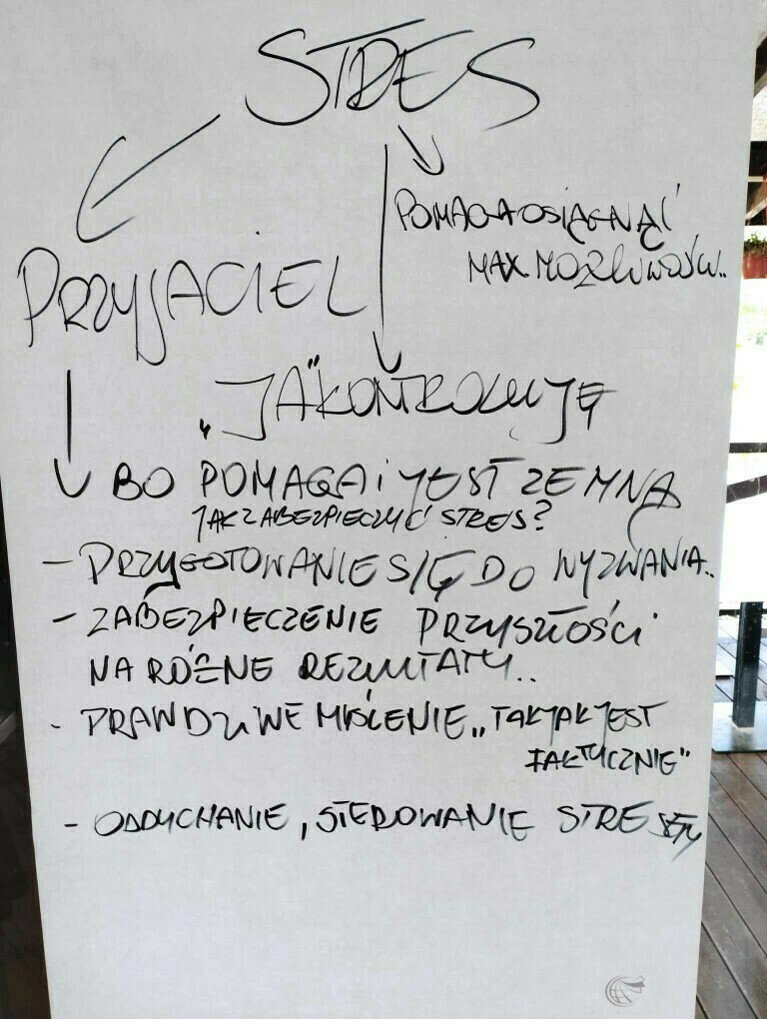 STRES
POMAGA OSIĄGNĄĆ
MAX MOŻLIWOŚCI..
PRZYJACIEL
„JA" KONTROLUJĘ
BO POMAGA i JEST ZE MNĄ
JAK ZABEZPIECZYĆ STRES?
- PRZYGOTOWANIE SIĘ DO WYZWANIA..
- ZABEZPIECZENIE PRZYSZŁOŚCI
NA RÓŻNE REZULTATY..
- PRAWDZIWE MYŚLENIE „TAK JAK JEST
FAKTYCZNIE"
- ODDYCHANIE, STEROWANIE